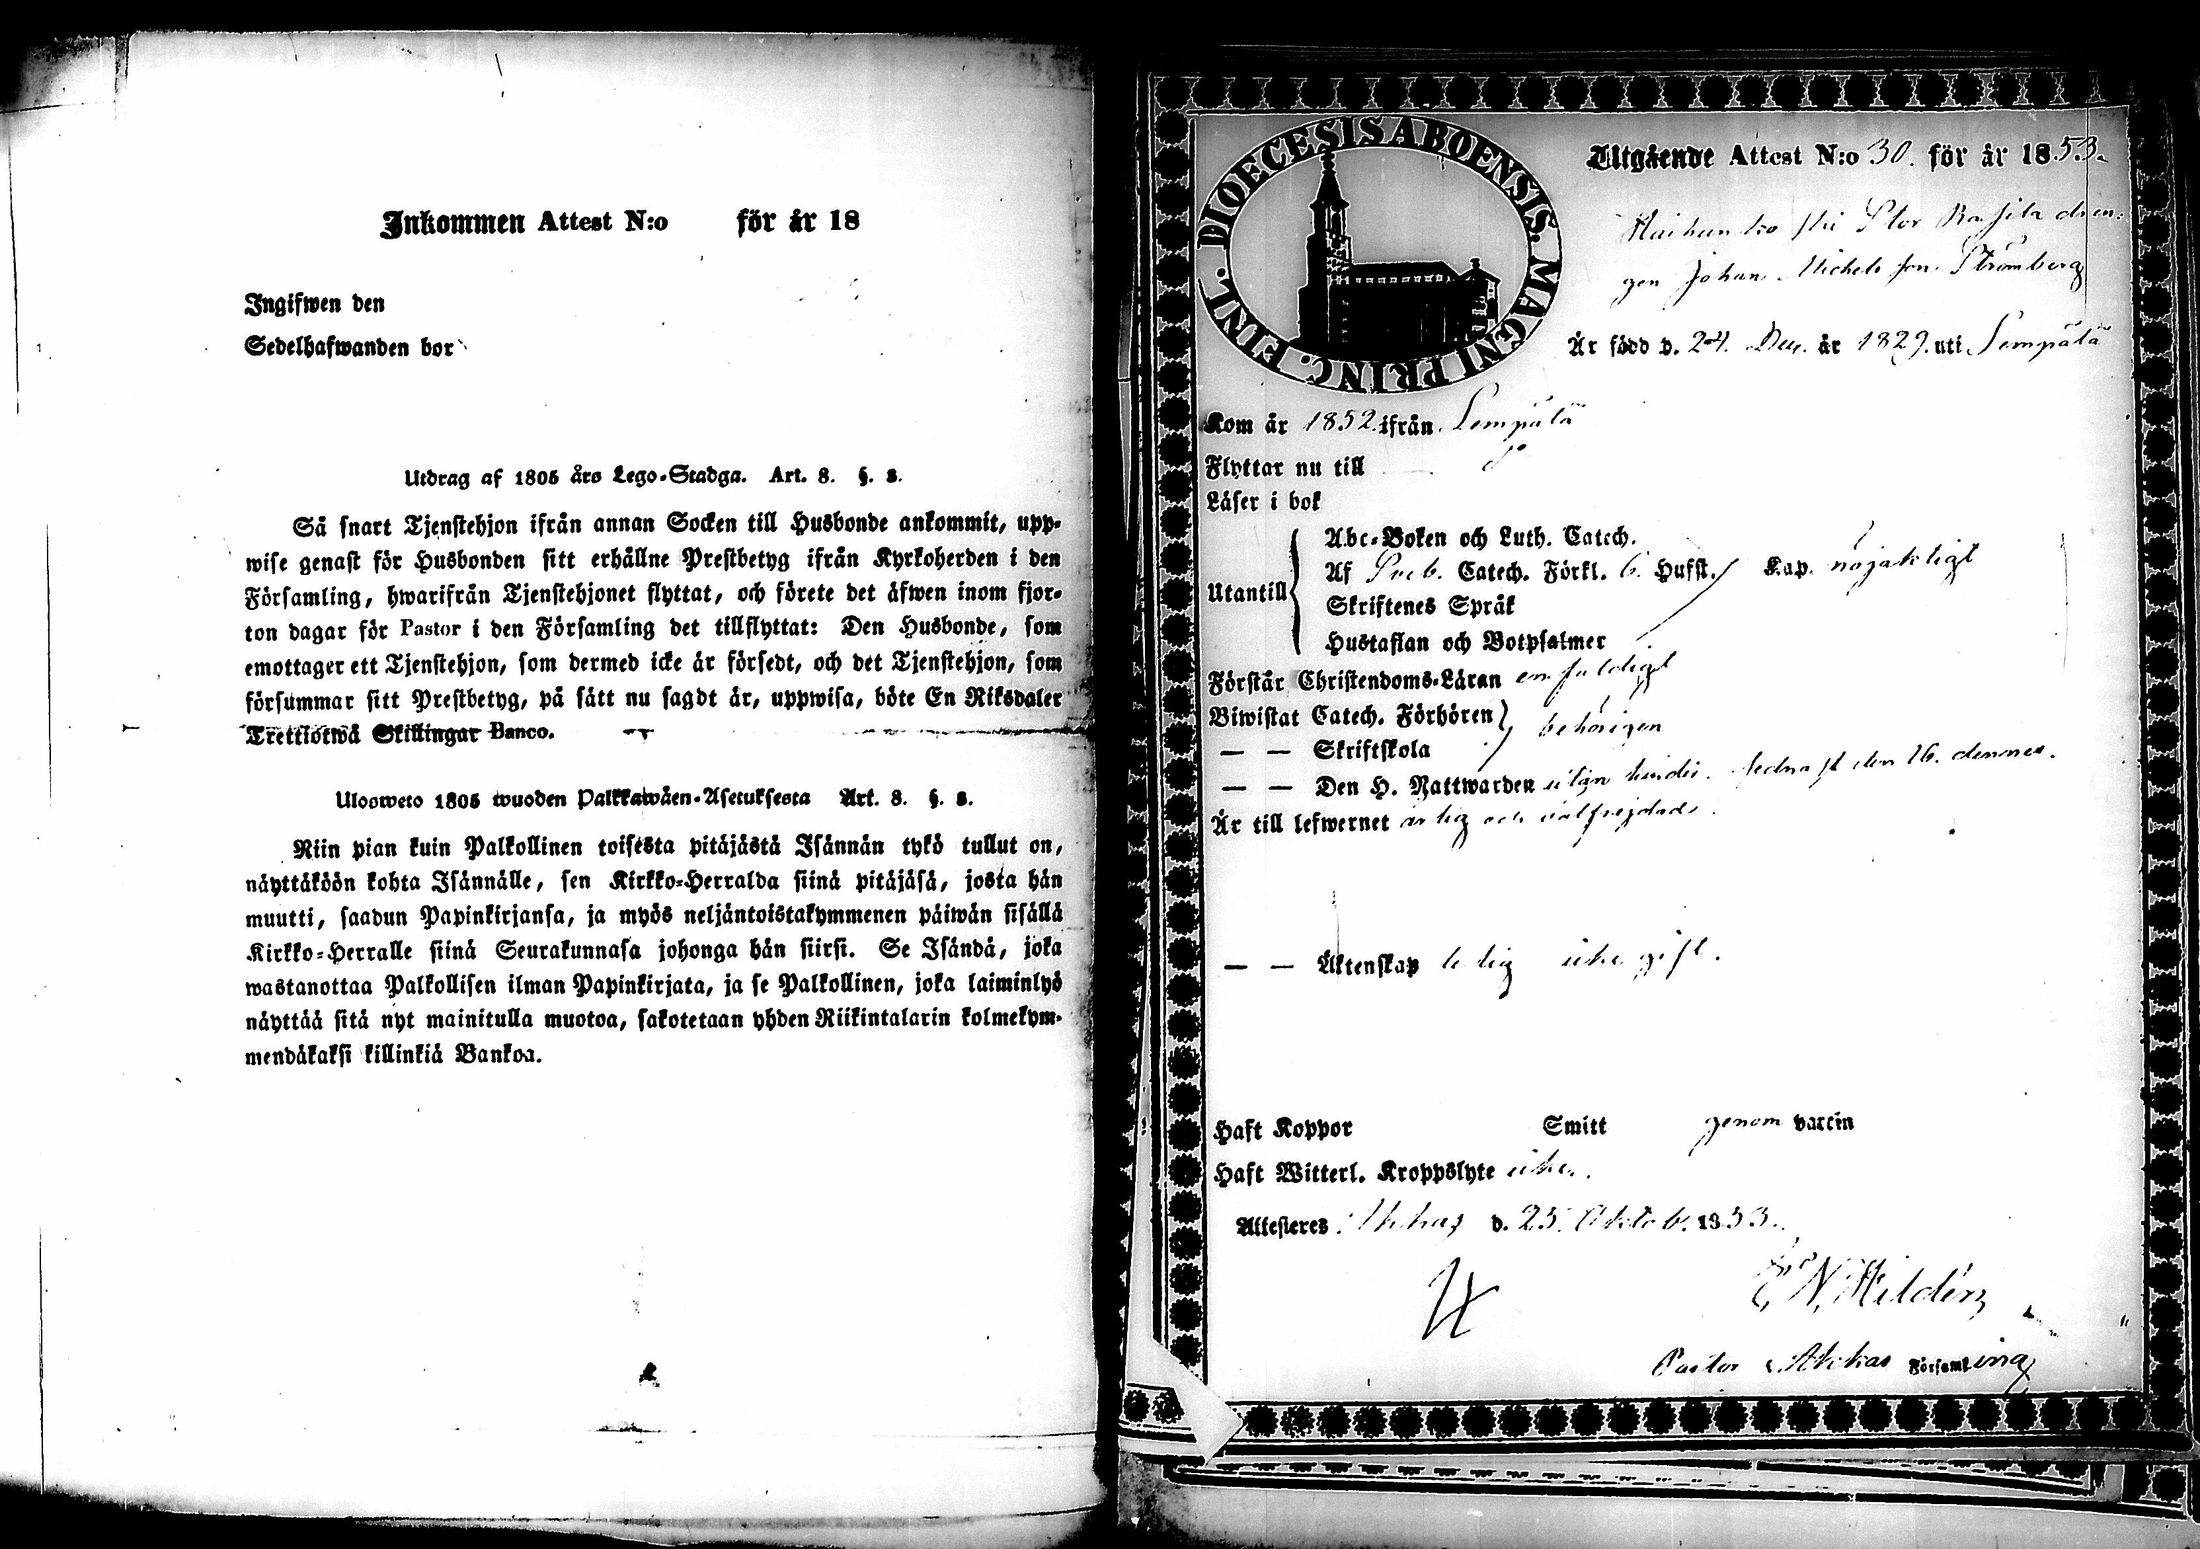 Inkommen Attest N:o för år 18
Ingifwen den
Sedelhafwanden bor
Utdrag af 1805 års Lego-Stadga. Art. 8. §. 3.
Så snart Tjenstehjon ifrån annan Socken till Husbonde ankommit, upp-
wise genast för Husbonden sitt erhållne Prestbetyg ifrån Kyrkoherden i den
Församling, hwarifrån Tjenstehjonet flyttat, och förete det äfwen inom fjor-
ton dagar för Pastor i den Församling det tillflyttat: Den Husbonde, som
emottager ett Tjenstehjon, som dermed icke är försedt, och det Tjenstehjon, som
försummar sitt Prestbetyg, på sätt nu sagdt är, uppwisa, böte En Riksdaler
Trettiotwå Skillingar Banco.
Ulosweto 1805 wuoden Palkkawäen-Asetuksesta Art. 8. §. 3.
Niin pian kuin Palkollinen toisesta pitäjästä Isännän tykö tullut on,
näyttäköön kohta Isännälle, sen Kirkko-Herralda siinä pitäjäsä, josta hän
muutti, saadun Papinkirjansa, ja myös neljäntoistakymmenen päiwän sisällä
Kirkko-Herralle siinä Seurakunnasa johonga hän siirsi. Se Isändä, joka
wastanottaa Palkollisen ilman Papinkirjata, ja se Palkollinen, joka laiminlyö
näyttää sitä nyt mainitulla muotoa, sakotetaan yhden Riikintalarin kolmekym-
mendäkaksi killinkiä Bankoa.
DIOECESIS ABOENSIS. MAGNI PRINC. FINL.
Utgående Attest N:o 30. för år 1853.
Stor dren-
gen Johan Michelsson Strömberg
Är född d. 24. Dec. år 1829. uti Lempälä
Kom år 1852. ifrån Lempälä
Flyttar nu till
Läser i bok
Utantill
Abc-Boken och Luth. Catech.
Af Sveb. Catech. Förkl. 6. Hufst. Kap. nöjaktigt
Skriftenes Språk
Hustaflan och Botpsalmer
Förstår Christendoms-Läran enfaldigt
Biwistat Catech. Förhören
— — Skriftskola behörigen
— — Den H. Nattwarden utan hinder. sednast den 16. dennes.
Är till lefwernet ärlig och välfrejdad.
— — Äktenskap ledig icke gift.
Haft Koppor Smitt genom vaccin
Haft Witterl. Kroppslyte icke.
Attesteres Ackas d. 25. Oktob. 1853.
N. Hildén
Pastor i Akkas Församling